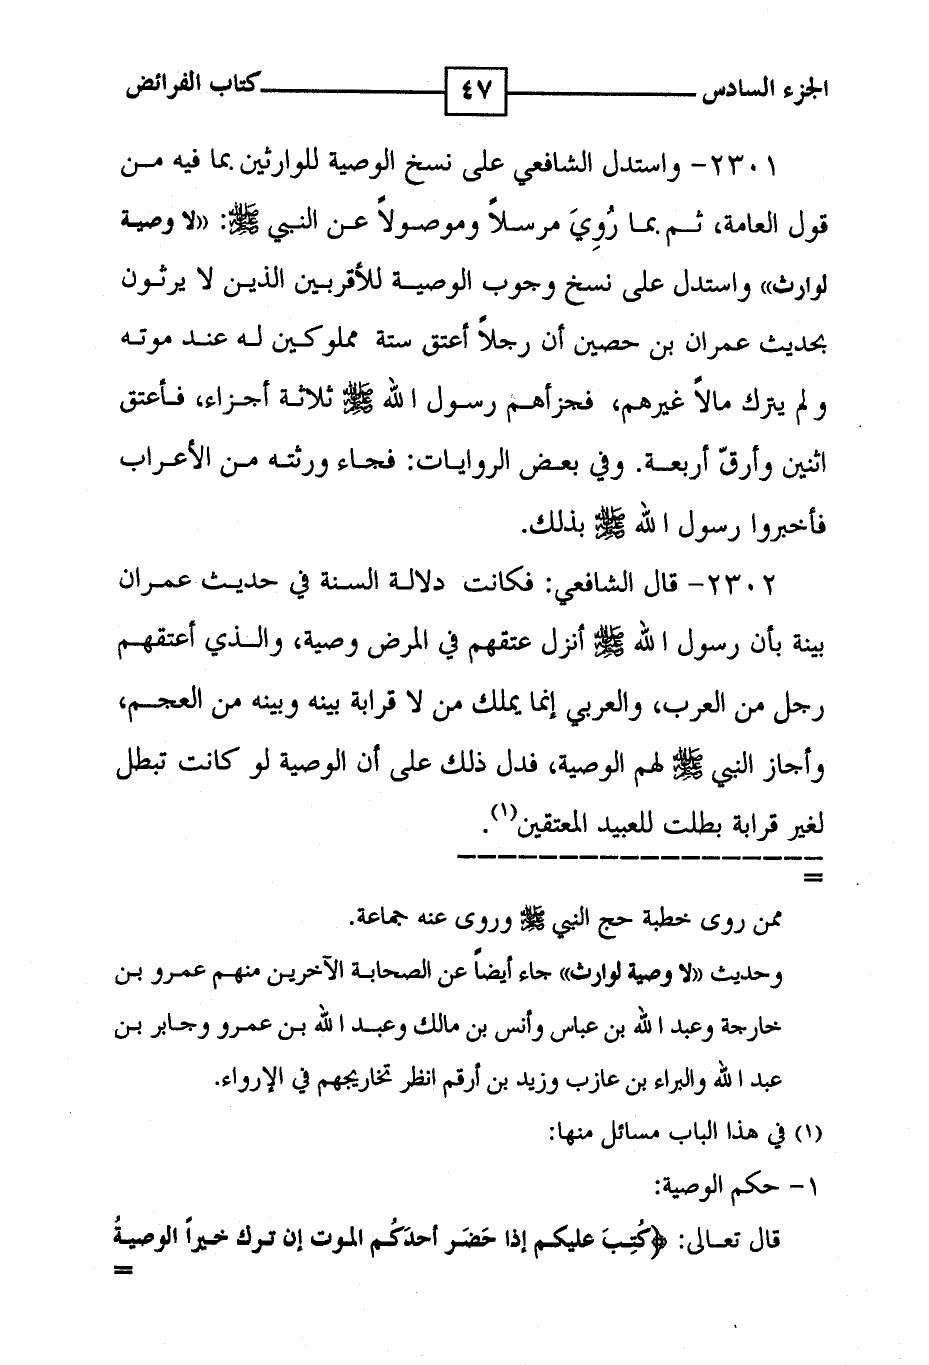 الجزء السادس ٤٧ كتاب الفرائض
٢٣٠١- واستدل الشافعي على نسخ الوصية للوارثين بما فيه مـن
قول العامة، ثـم بمـا رُوِيَ مرسـلاً وموصـولاً عـن النبي ﷺ: «لا وصيـة
لوارث» واستدل علـى نسخ وجـوب الوصيـة للأقربـين الذيـن لا يرثـون
بحديث عمـران بن حصين أن رجـلاً أعتق ستة مملوكـين لـه عنـد موتـه
ولم يترك مـالاً غيرهم، فـجزأهـم رسـول الله ﷺ ثلاثـة أجـزاء، فـأعتق
اثنين وأرقّ أربعـة. وفي بعـض الروايـات: فجـاء ورثتـه مـن الأعـراب
فأخبروا رسول الله ﷺ بذلك.
٢٣٠٢- قال الشافعي: فكانت دلالـة السنة في حديـث عمـران
بينة بأن رسول الله ﷺ أنزل عتقهم في المرض وصية، والـذي أعتقهـم
رجل من العرب، والعربي إنما يملك من لا قرابة بينه وبينه من العجـم،
وأجاز النبي ﷺ لهم الوصية، فدل ذلك على أن الوصية لو كانت تبطل
لغير قرابة بطلت للعبيد المعتقين(١).
=
ممن روى خطبة حج النبي ﷺ وروى عنه جماعة.
وحديث «لا وصية لوارث» جاء أيضاً عن الصحابة الآخرين منهـم عمرو بن
خارجة وعبد الله بن عباس وأنس بن مالك وعبـد الله بـن عمرو وجـابر بـن
عبد الله والبراء بن عازب وزيد بن أرقم انظر تخاريجهم في الإرواء.
(١) في هذا الباب مسائل منها:
١- حكم الوصية:
قال تعـالى: ﴿كُتِـبَ عليكـم إذا حَضَـر أحدَكُـم المـوت إن تـرك خـيراً الوصيـةُ
=